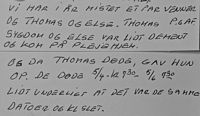 VI HAR I ÅR MISTET ET PAR VENNER
OG THOMAS OG ELSE. THOMAS P.GAF.
SYGDOM OG ELSE VAR LIDT DEMENT
OG KOM PÅ PLEJEHJEM.
OG DA THOMAS DØDE, GAV HUN
OP. DE DØDE 5/4- KL 730 5/6 730
LIDT UNDERLIGT AT DET VAR DE SAMME
DATOER OG KLSLET.